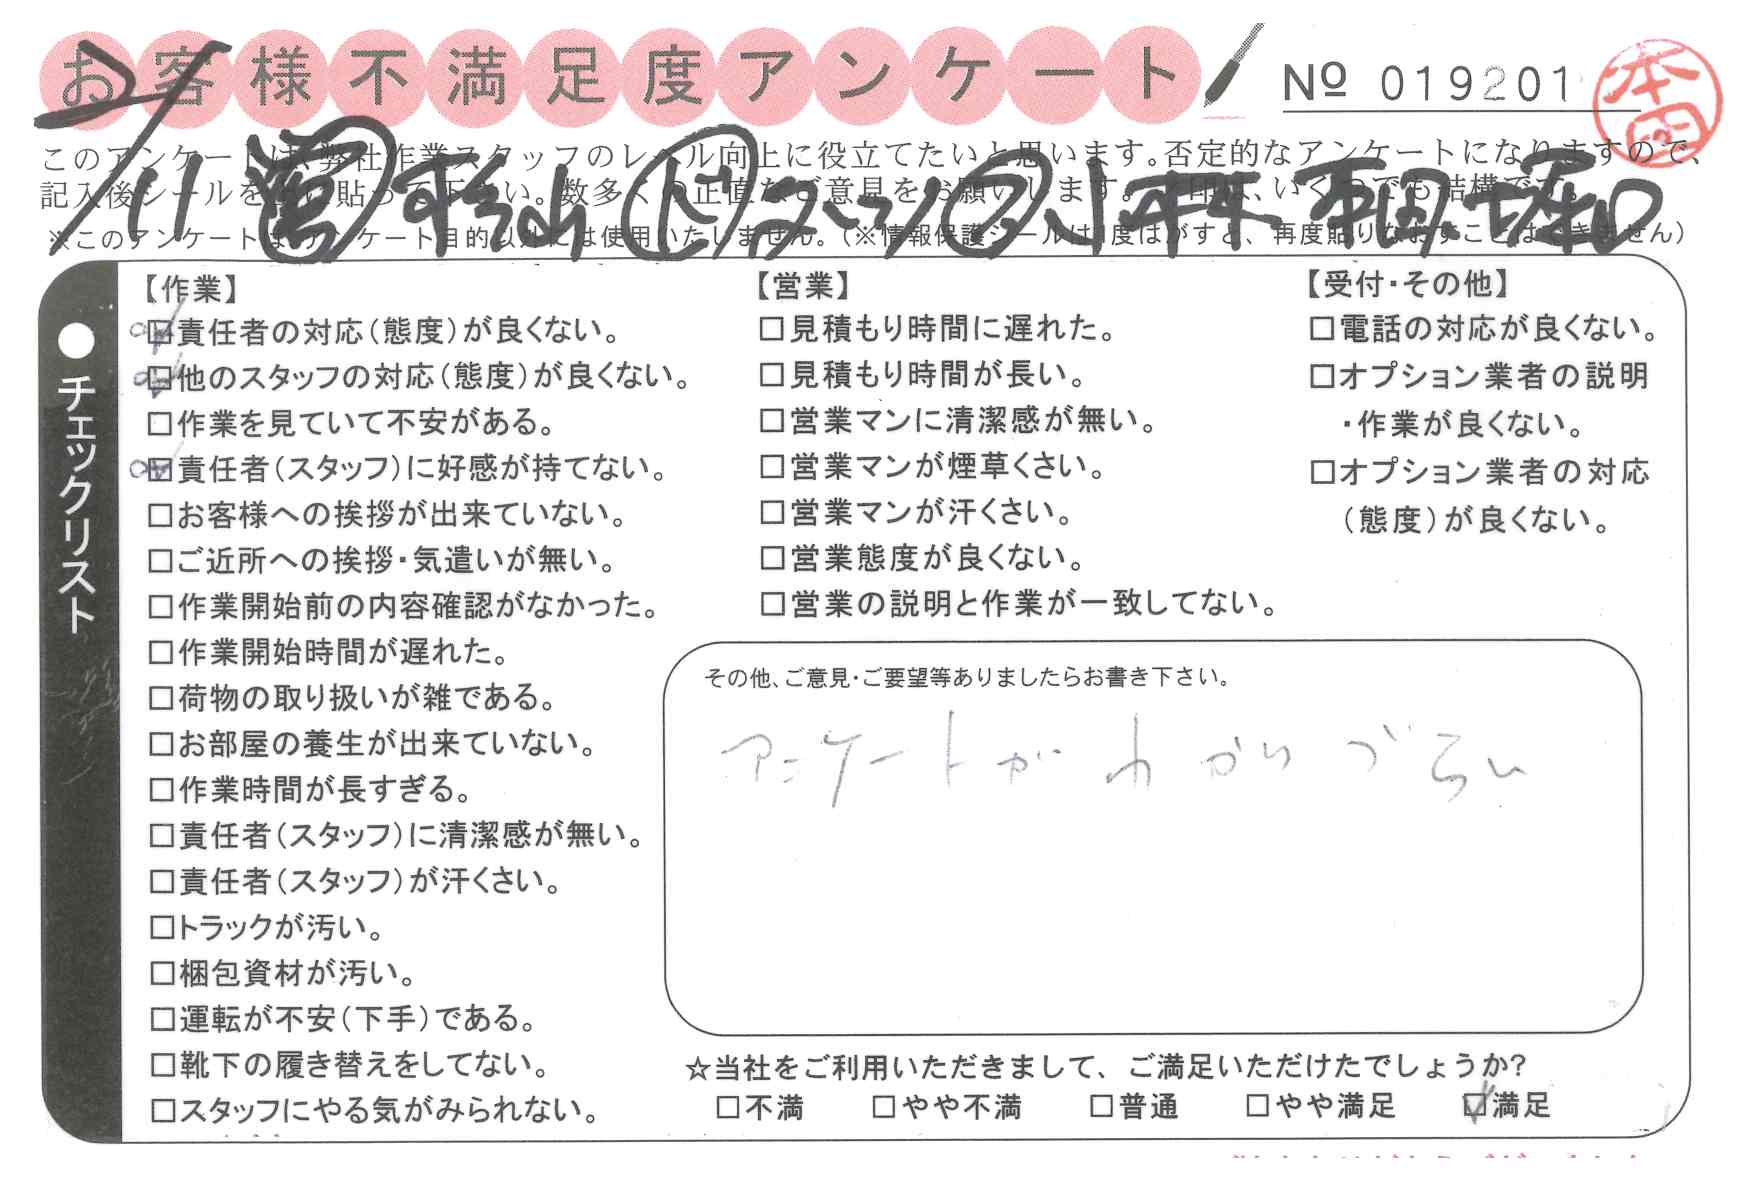 お客様不満足度アンケート
№ 019201
本田
このアンケートは、弊社作業スタッフのレベル向上に役立てたいと思います。否定的なアンケートになりますので、
記入後シールを上に貼って下さい。数多くの正直なご意見をお願いします。
※このアンケートは、アンケート目的以外には使用いたしません。(※情報保護シールは1度はがすと、再度貼りなおすことはできません)
2/11 営 杉山 小林 本田 堀口
●チェックリスト
【作業】
☑責任者の対応(態度)が良くない。
☑他のスタッフの対応(態度)が良くない。
□作業を見ていて不安がある。
☑責任者(スタッフ)に好感が持てない。
□お客様への挨拶が出来ていない。
□ご近所への挨拶・気遣いが無い。
□作業開始前の内容確認がなかった。
□作業開始時間が遅れた。
□荷物の取り扱いが雑である。
□お部屋の養生が出来ていない。
□作業時間が長すぎる。
□責任者(スタッフ)に清潔感が無い。
□責任者(スタッフ)が汗くさい。
□トラックが汚い。
□梱包資材が汚い。
□運転が不安(下手)である。
□靴下の履き替えをしてない。
□スタッフにやる気がみられない。
【営業】
□見積もり時間に遅れた。
□見積もり時間が長い。
□営業マンに清潔感が無い。
□営業マンが煙草くさい。
□営業マンが汗くさい。
□営業態度が良くない。
□営業の説明と作業が一致してない。
【受付・その他】
□電話の対応が良くない。
□オプション業者の説明
・作業が良くない。
□オプション業者の対応
(態度)が良くない。
その他、ご意見・ご要望等ありましたらお書き下さい。
アンケートがわかりづらい
☆当社をご利用いただきまして、ご満足いただけたでしょうか?
□不満 □やや不満 □普通 □やや満足 ☑満足